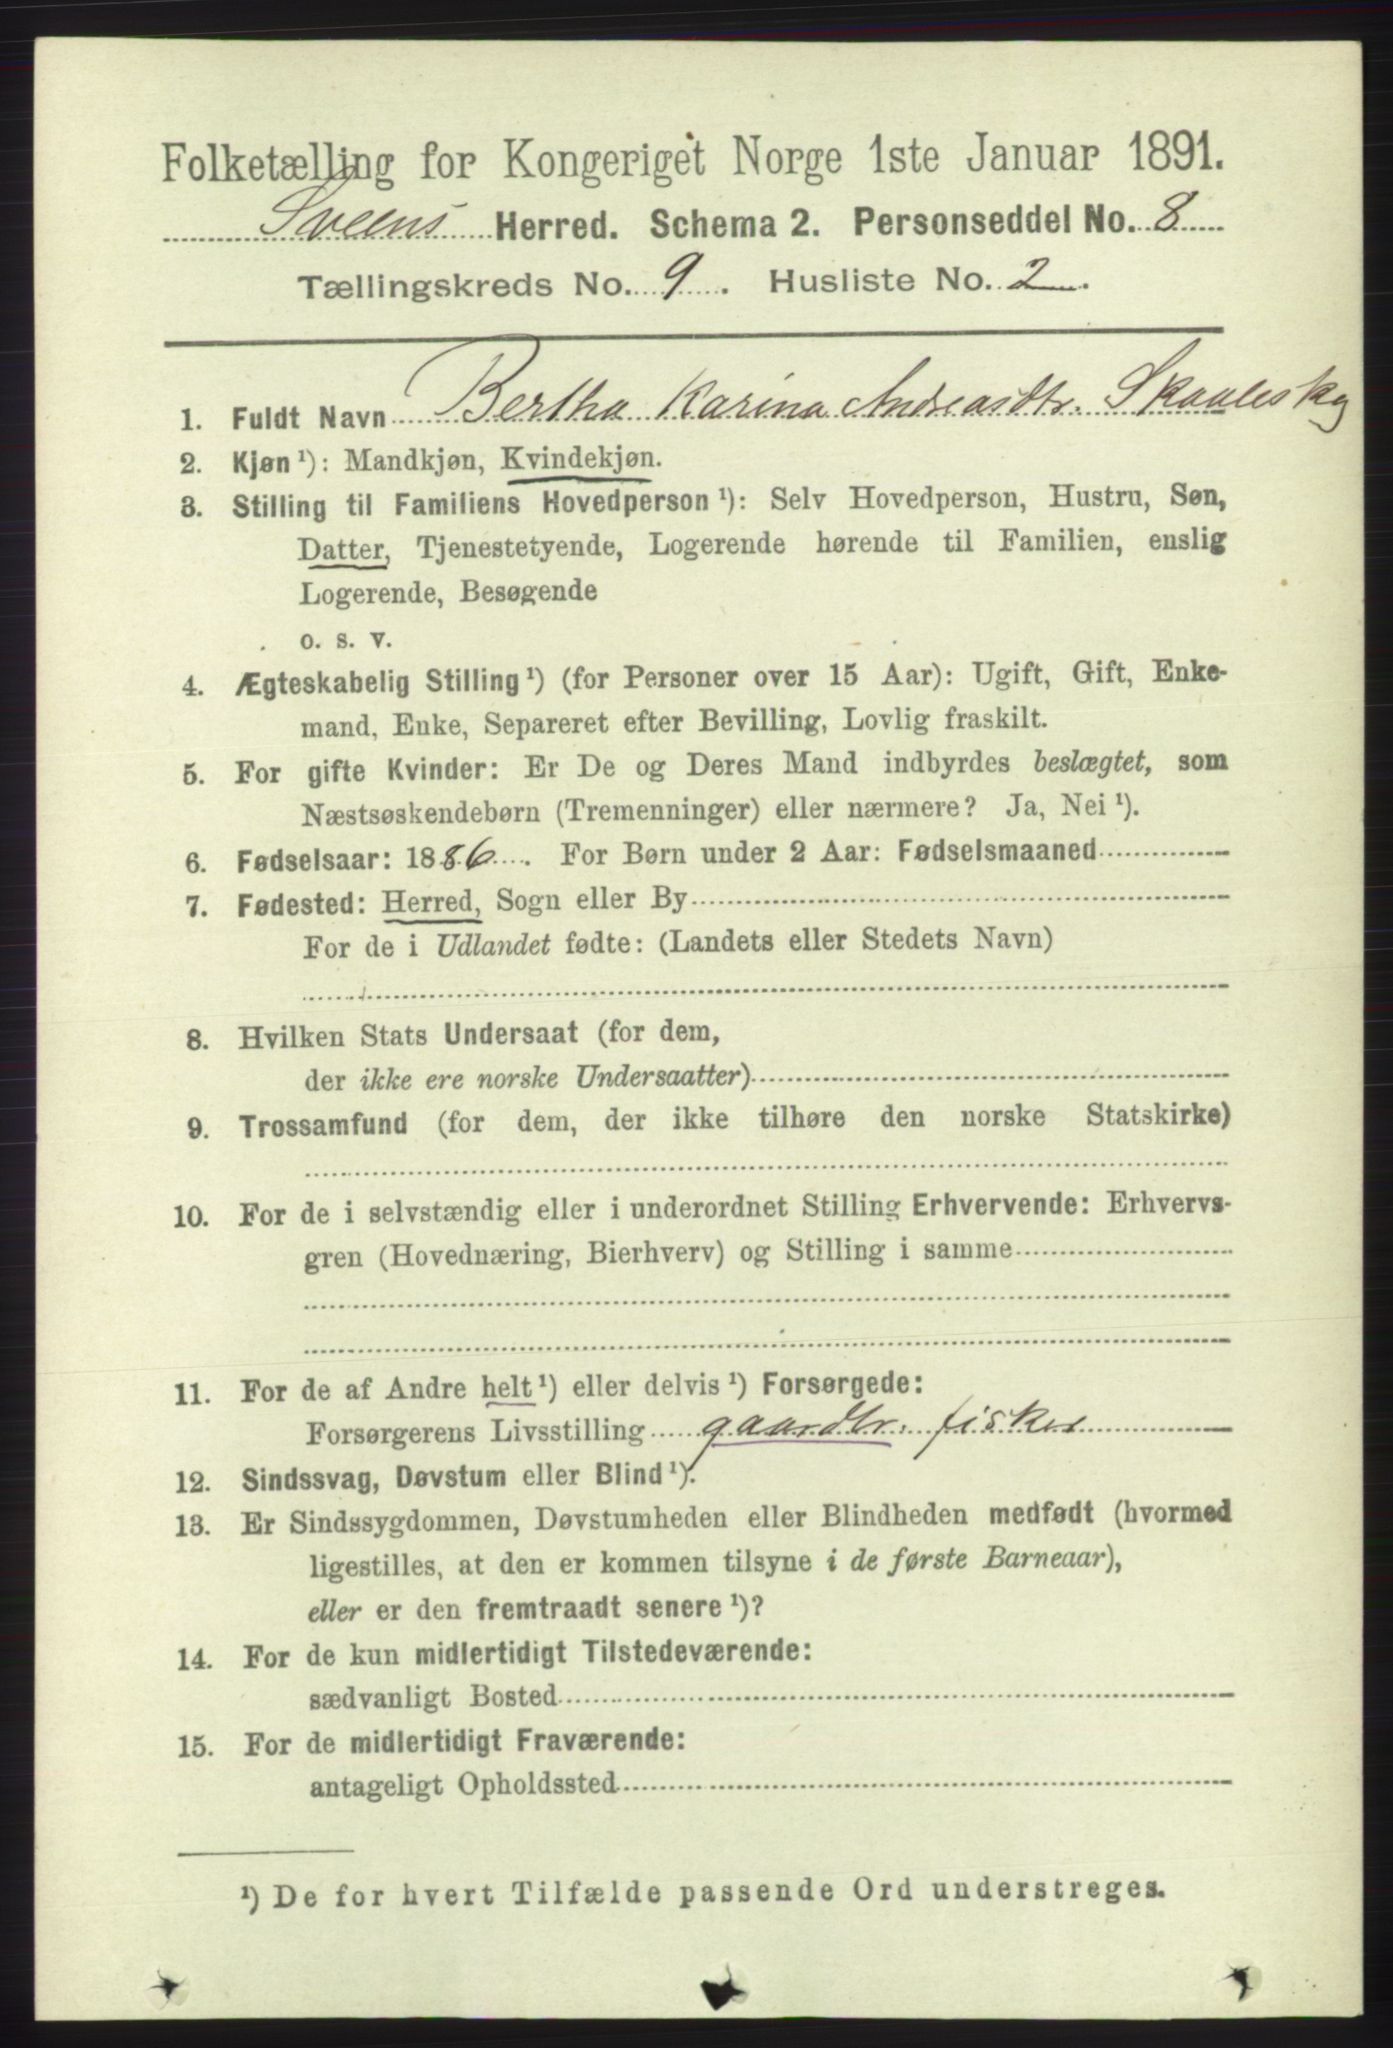 Folketælling for Kongeriget Norge 1ste Januar 1891.
Sveens Herred. Schema 2. Personseddel No. 8
Tællingskreds No. 9. Husliste No. 2.
1. Fuldt Navn Bertha Karina Andreasdtr.
2. Kjøn ¹): Mandkjøn, Kvindekjøn.
3. Stilling til Familiens Hovedperson ¹): Selv Hovedperson, Hustru, Søn,
Datter, Tjenestetyende, Logerende hørende til Familien, enslig
Logerende, Besøgende
o. s. v.
4. Ægteskabelig Stilling ¹) (for Personer over 15 Aar): Ugift, Gift, Enke-
mand, Enke, Separeret efter Bevilling, Lovlig fraskilt.
5. For gifte Kvinder: Er De og Deres Mand indbyrdes beslægtet, som
Næstsøskendebørn (Tremenninger) eller nærmere? Ja, Nei ¹).
6. Fødselsaar: 1886. For Børn under 2 Aar: Fødselsmaaned
7. Fødested: Herred, Sogn eller By
For de i Udlandet fødte: (Landets eller Stedets Navn)
8. Hvilken Stats Undersaat (for dem,
der ikke ere norske Undersaatter)
9. Trossamfund (for dem, der ikke tilhøre den norske Statskirke)
10. For de i selvstændig eller i underordnet Stilling Erhvervende: Erhvervs-
gren (Hovednæring, Bierhverv) og Stilling i samme
11. For de af Andre helt ¹) eller delvis ¹) Forsørgede:
Forsørgerens Livsstilling gaardbr. fisker
12. Sindssvag, Døvstum eller Blind ¹).
13. Er Sindssygdommen, Døvstumheden eller Blindheden medfødt (hvormed
ligestilles, at den er kommen tilsyne i de første Barneaar),
eller er den fremtraadt senere ¹)?
14. For de kun midlertidigt Tilstedeværende:
sædvanligt Bosted
15. For de midlertidigt Fraværende:
antageligt Opholdssted
¹) De for hvert Tilfælde passende Ord understreges.